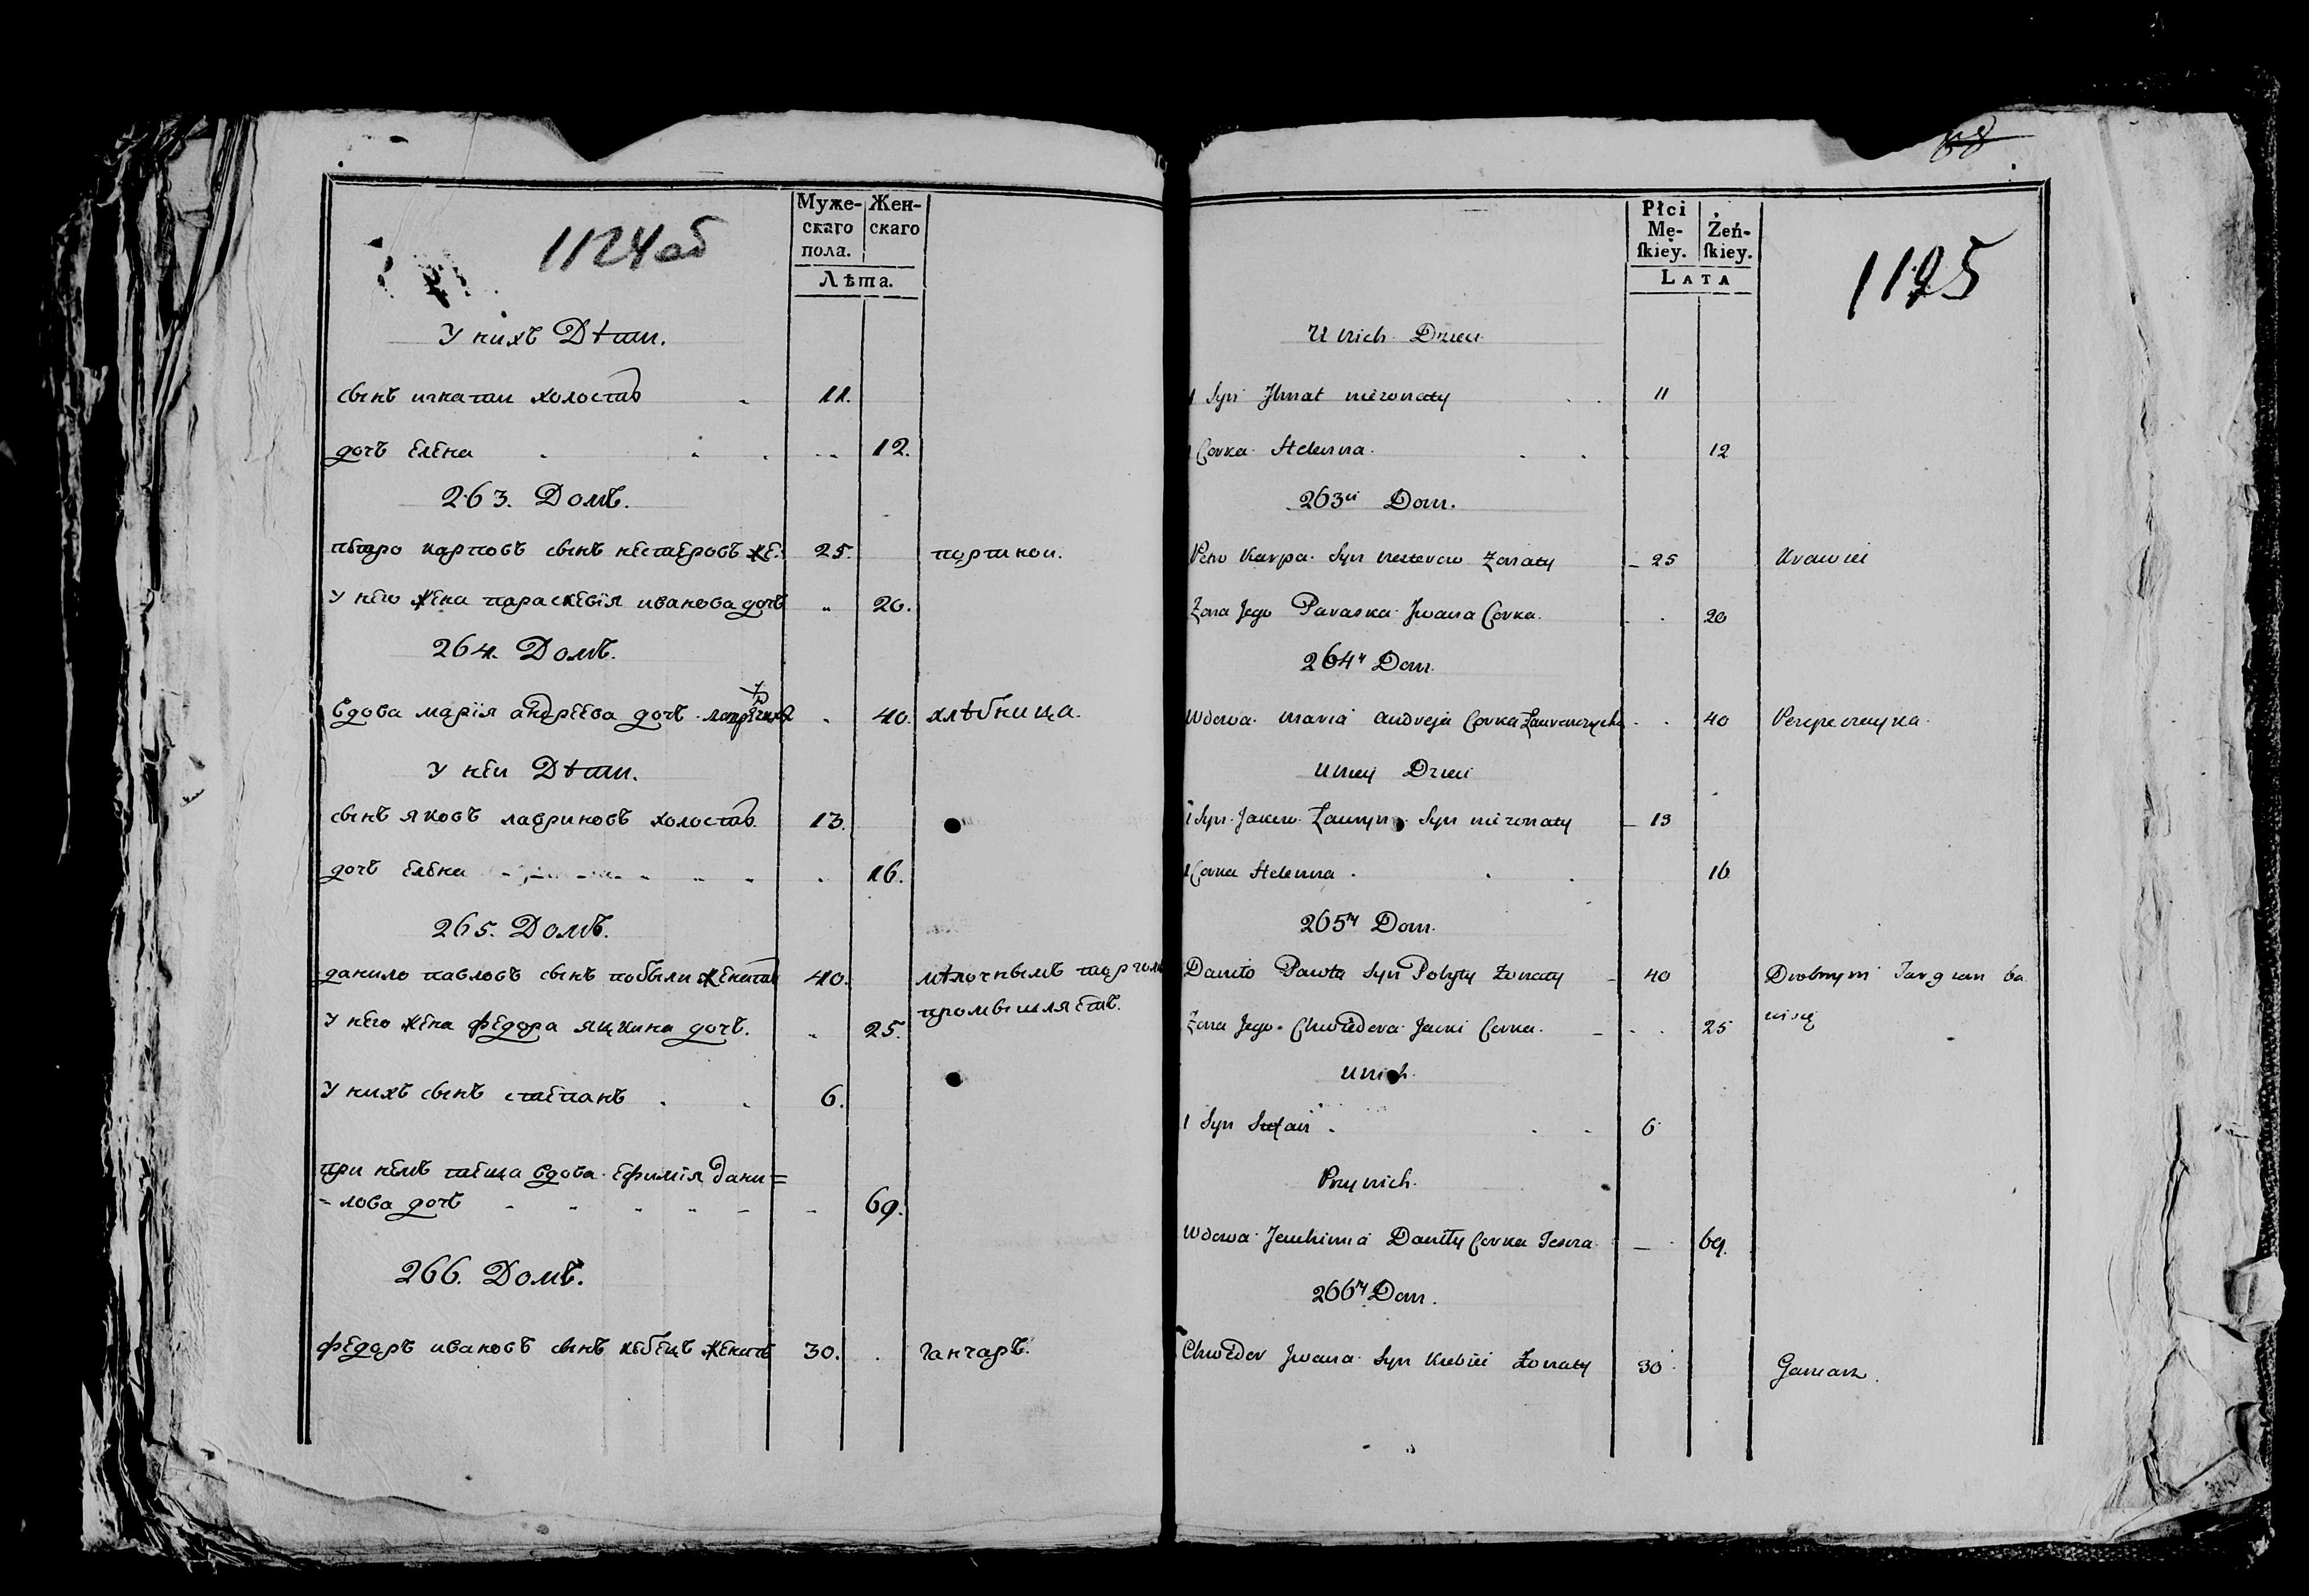 Муже-
скаго
пола.
Жен-
скаго
Лѣта.
1124об
У нихъ Дѣти.
сынъ игнатий холостъ 11.
дочь елена 12.
263. Домъ.
петро карповъ сынъ нестеровъ же: 25. портной.
У него жена параскевия иванова дочь 20.
264. Домъ.
вдова марїя андреева дочь 40. хлѣбница.
У ней Дѣти.
сынъ яковъ лавриновъ холостъ 13.
дочь елена 16.
265. Домъ.
данило павловъ сынъ побыли женатъ 40. мѣлочнымъ торгомъ
промышляетъ.
У него жена федора яцкина дочь. 25.
У нихъ сынъ степанъ 6.
при немъ теща вдова ефимїя дани=
-лова дочь 69.
266. Домъ.
федоръ ивановъ сынъ кебецъ женатъ 30. ганчаръ.
68
Płci
Mę-
ſkiey.
Żeń-
ſkiey.
LATA
1125
U nich Dzieci
1 Syn Ihnat nieżonaty 11
1 Corka Helenna 12
263ci Dom.
Petro Karpa Syn Nesterow Żonaty 25 Krawiec
Żona Jego Paraska Jwana Corka. 20
264ty Dom.
Wdowa Maria Andreja Corka 40 Perepeczayka
U niey Dzieci
1 Syn Jakow Ławryna Syn nieżonaty 13
1 Corka Helenna 16
265ty Dom.
Daniło Pawła Syn Pobyły Żonaty 40 Drobnym Targiem ba
wi się
Żona Jego Chwiedora Jacki Corka. 25
U nich
1 Syn Stefan 6
Przy nich.
Wdowa Jeuchimia Daniły Corka Tescza 69.
266ty Dom.
Chwedor Jwana Syn Kiebiec Żonaty 30 Garncarz.